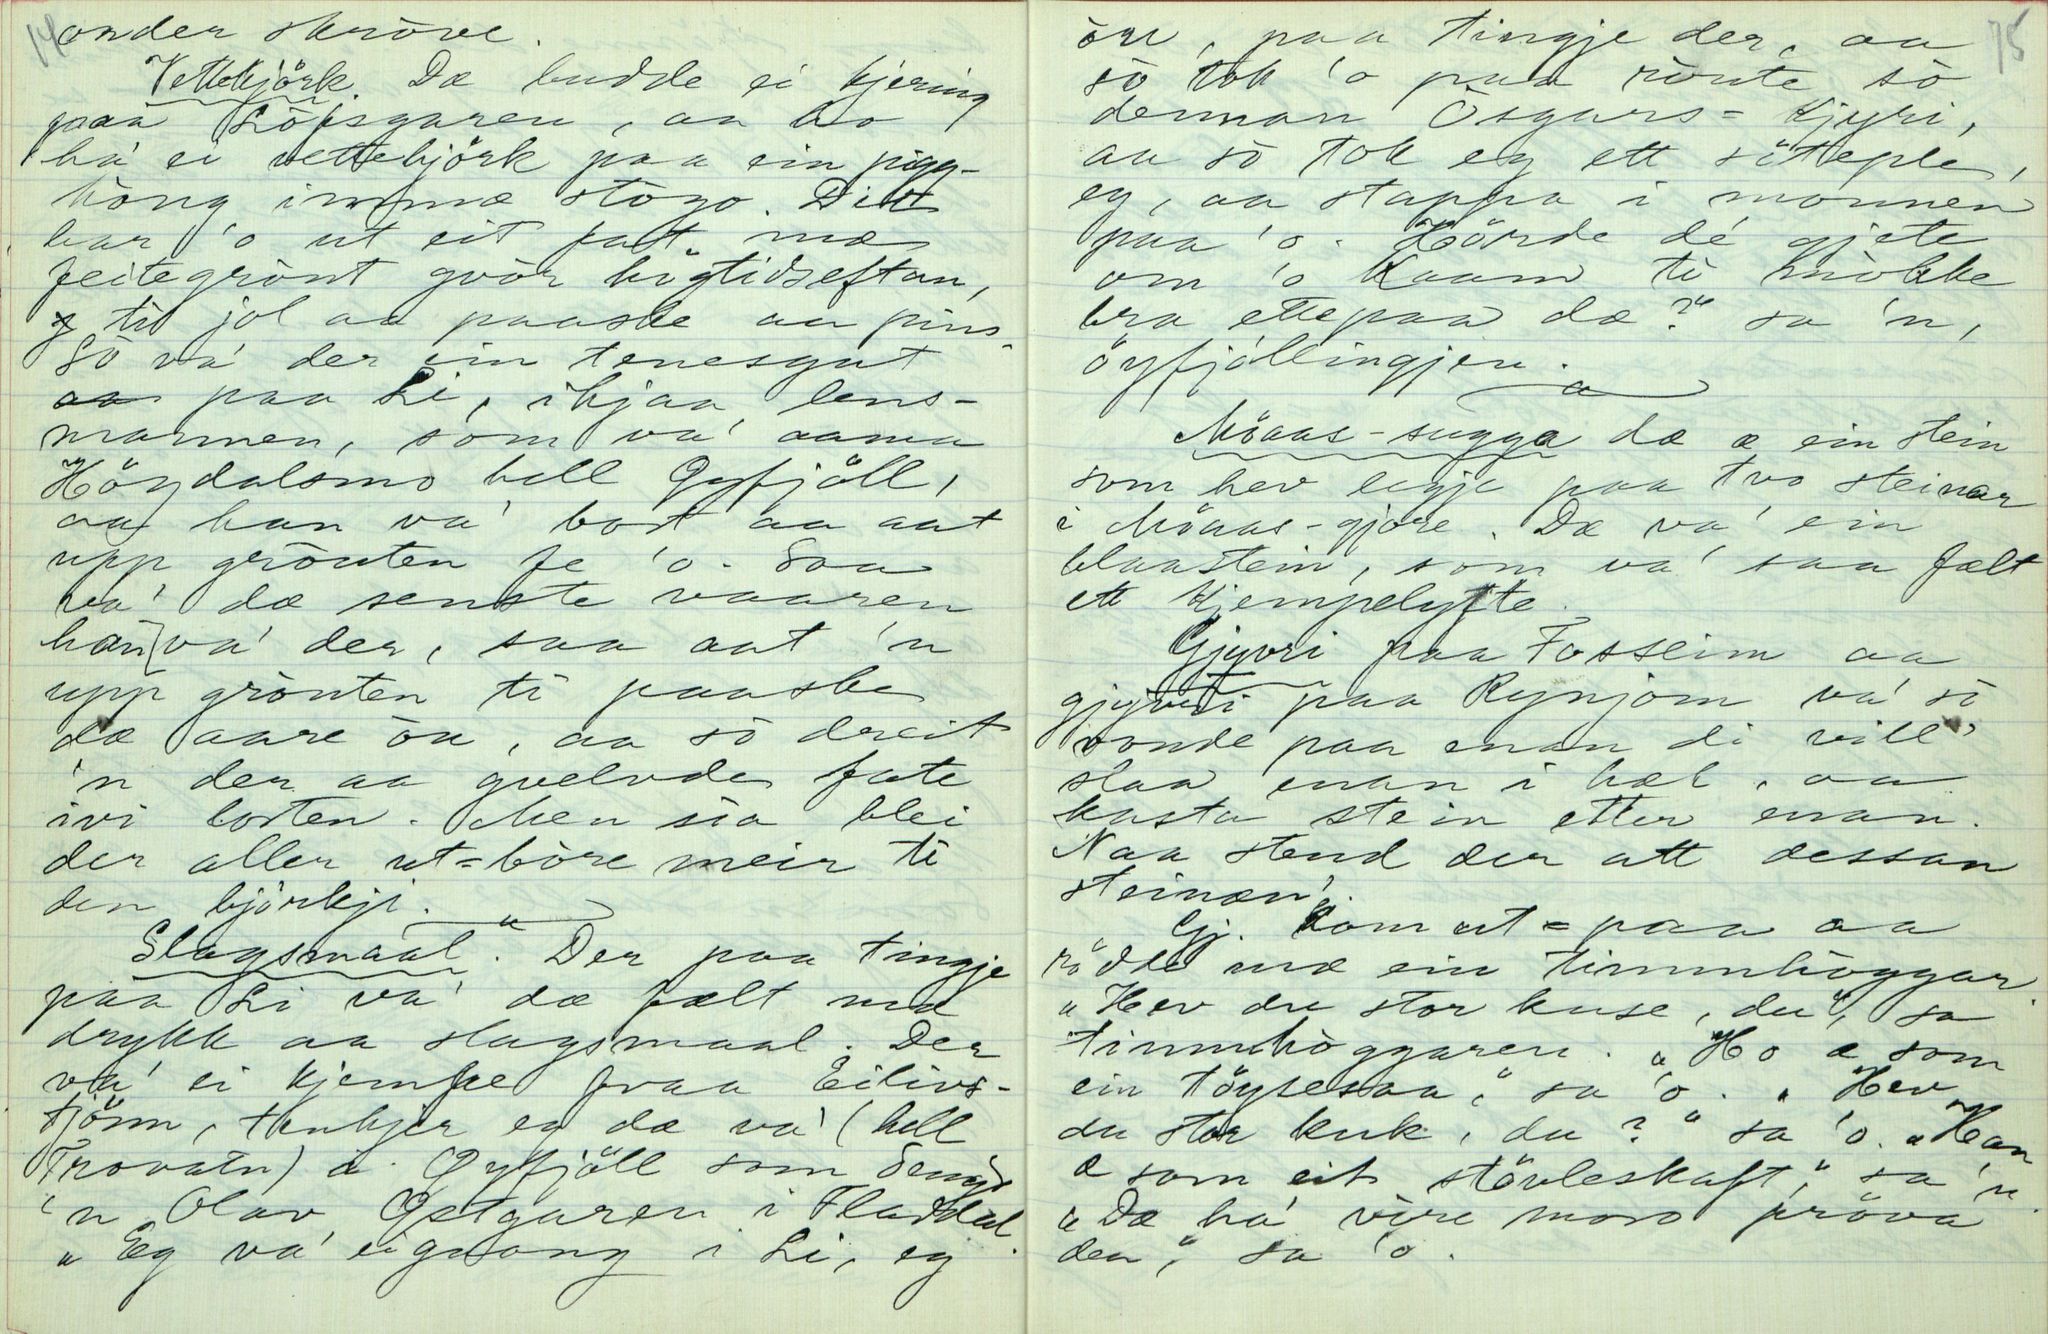 14
onder skrövl.
Vettebjörk. Dæ budde ei kjering
paa Löfsgaren, aa ho
ha' ei vettebjörk paa ein pigg-
höug immæ stogo. Dit
bar 'o ut eit fat mæ
feitegrönt gvör högtidseftan,
ti jol aa paaske aa pins.
So va' der ein tenesgut
paa Li, ihjaa lens-
mannen, som va' aana
Höydalsmo hell Øyfjöll,
aa han va' bort aa aat
upp grönten fe 'o. Soa
va' dæ senste vaaren
han va' der, saa aat 'n
upp grönten ti paaske
dæ aare öu, aa so dreit
'n der aa gvelvde fate
ivi lorten. Men sia blei
der aller ut=böre meir ti
den björkji.
Slagsmaal. Der paa tingje
paa Li va' dæ fælt mæ
drykk aa slagsmaal. Der
va' ei kjempe fraa Eilivs-
tjönn, tenkjer eg dæ va' (hell
Trovatn) i Øyfjöll som
'n Olav Östgaren i Flatdal.
„Eg va' eigaong i Li, eg
75
öu, paa tingje der, aa
so tok 'o paa röute so
dennan Ösgars=kjyri,
aa so tok eg ett söteple,
eg, aa stappa i monnen
paa 'o. Hörde de' gjete
om 'o kaam ti mökke
bra ettepaa dæ?" sa 'n,
öyfjöllingjen.
Möaas-sugga dæ æ ein stein
som hev legje paa tvo steinar
i Möaas-gjore. Dæ va' ein
blaastein, som va' saa fælt
ett kjempelyfte.
Gjyvri paa Fosseim aa
gjyvri paa Rynjom va' so
vonde paa enan di vill'
slaa enan i hæl, aa
kasta stein etter enan.
Naa stend der att dessan
steinæn'.
Gj. kom ut=paa aa
rödde mæ ein timmhöggar.
„Hev du stor kuse, du", sa
timmhöggaren. „Ho æ som
ein töyresaa," sa 'o. „Hev
du stor kuk, du?" sa 'o. „Han
æ som eit stövleskaft," sa 'n.
„Dæ ha' vöre moro pröva
den," sa 'o.